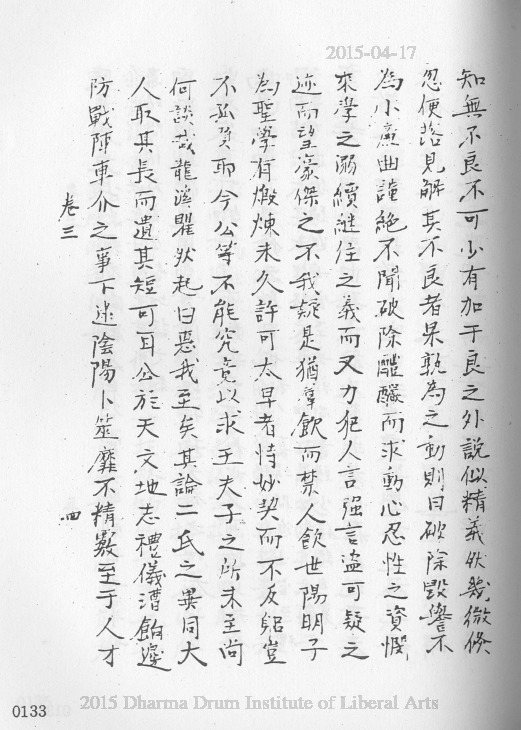 2015-04-17
知無不良不可少有加于良之外說似精義然幾微倐
忽便落見解其不良者果孰為之動則曰破除毀譽不
為小廉曲謹絕不聞破除醲釅而求動心忍性之資憫
來學之溺續繼往之義而又力犯人言强言盜可疑之
迹而望豪傑之不我疑是猶羣飲而禁人飲世陽明子
為聖學有煅煉未久許可太早者恃妙契而不反躬豈
不孤負耶今公等不能究竟以求王夫子之所未至尚
何談哉龍溪瞿然起曰惡我至矣其論二氏之異同大
人取其長而遺其短可耳公於天文地志禮儀漕餉邊
防戰陣車介之事下逮陰陽卜筮靡不精覈至于人才
卷三
四
0133
2015 Dharma Drum Institute of Liberal Arts